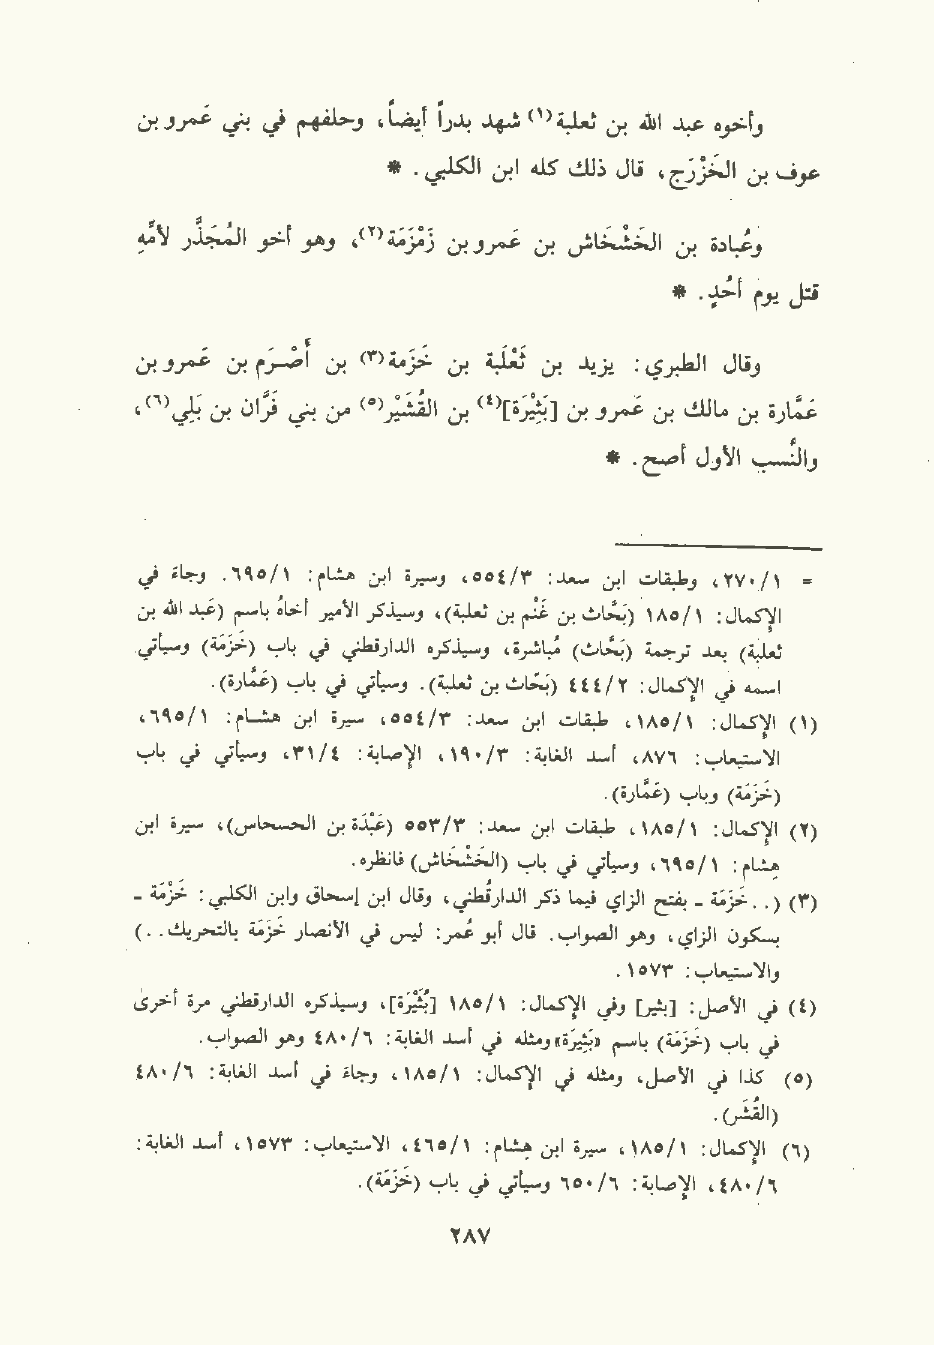 وأخوه عبد الله بن ثعلبة(١) شهد بدراً أيضاً، وحلفهم في بني عَمرو بن
عوف بن الخَزْرَج، قال ذلك كله ابن الكلبي. *
وعُبادة بن الخَشْخَاش بن عَمرو بن زَمْزَمَة(٢)، وهو أخو المُجَذَّر لأمِّهِ
قتل يوم أُحُدٍ. *
وقال الطبري: يزيد بن ثَعْلَبة بن خَزَمة(٣) بن أَصْرَم بن عَمرو بن
عَمَّارة بن مالك بن عَمرو بن [بَثِيْرَة](٤) بن القُشَيْر(٥) من بني فَرَّان بن بَلِي(٦)،
والنَّسب الأول أصح. *
= ٢٧٠/١، وطبقات ابن سعد: ٥٥٤/٣، وسيرة ابن هشام: ٦٩٥/١. وجاءَ في
الإكمال: ١٨٥/١ (بَحَّاث بن غَنْم بن ثعلبة)، وسيذكر الأمير أخاهُ باسم (عَبد الله بن
ثعلبة) بعد ترجمة (بَحَّاث) مُباشرة، وسيذكره الدارقطني في باب (خَزَمَة) وسيأتي
اسمه في الإكمال: ٤٤٤/٢ (بَحَّاث بن ثعلبة). وسيأتي في باب (عَمَّارة).
(١) الإكمال: ١٨٥/١، طبقات ابن سعد: ٥٥٤/٣، سيرة ابن هشام: ٦٩٥/١،
الاستيعاب: ٨٧٦، أسد الغابة: ١٩٠/٣، الإصابة: ٣١/٤، وسيأتي في باب
(خَزَمَة) وباب (عَمَّارة).
(٢) الإكمال: ١٨٥/١، طبقات ابن سعد: ٥٥٣/٣ (عَبْدَة بن الحسحاس)، سيرة ابن
هشام: ٦٩٥/١، وسيأتي في باب (الخَشْخَاش) فانظره.
(٣) (.. خَزَمَة - بفتح الزاي فيما ذكر الدارقُطني، وقال ابن إسحاق وابن الكلبي: خَزْمَة -
بسكون الزاي، وهو الصواب. قال أبو عُمر: ليس في الأنصار خَزَمَة بالتحريك..)
والاستيعاب: ١٥٧٣.
(٤) في الأصل: [بثير] وفي الإكمال: ١٨٥/١ [بُثَيْرَة]، وسيذكره الدارقطني مرة أخرى
في باب (خَزَمَة) باسم «بَثِيرَة» ومثله في أسد الغابة: ٤٨٠/٦ وهو الصواب.
(٥) كذا في الأصل، ومثله في الإكمال: ١٨٥/١، وجاءَ في أسد الغابة: ٤٨٠/٦
(القُشَر).
(٦) الإكمال: ١٨٥/١، سيرة ابن هشام: ٤٦٥/١، الاستيعاب: ١٥٧٣، أسد الغابة:
٤٨٠/٦، الإصابة: ٦٥٠/٦ وسيأتي في باب (خَزَمَة).
٢٨٧